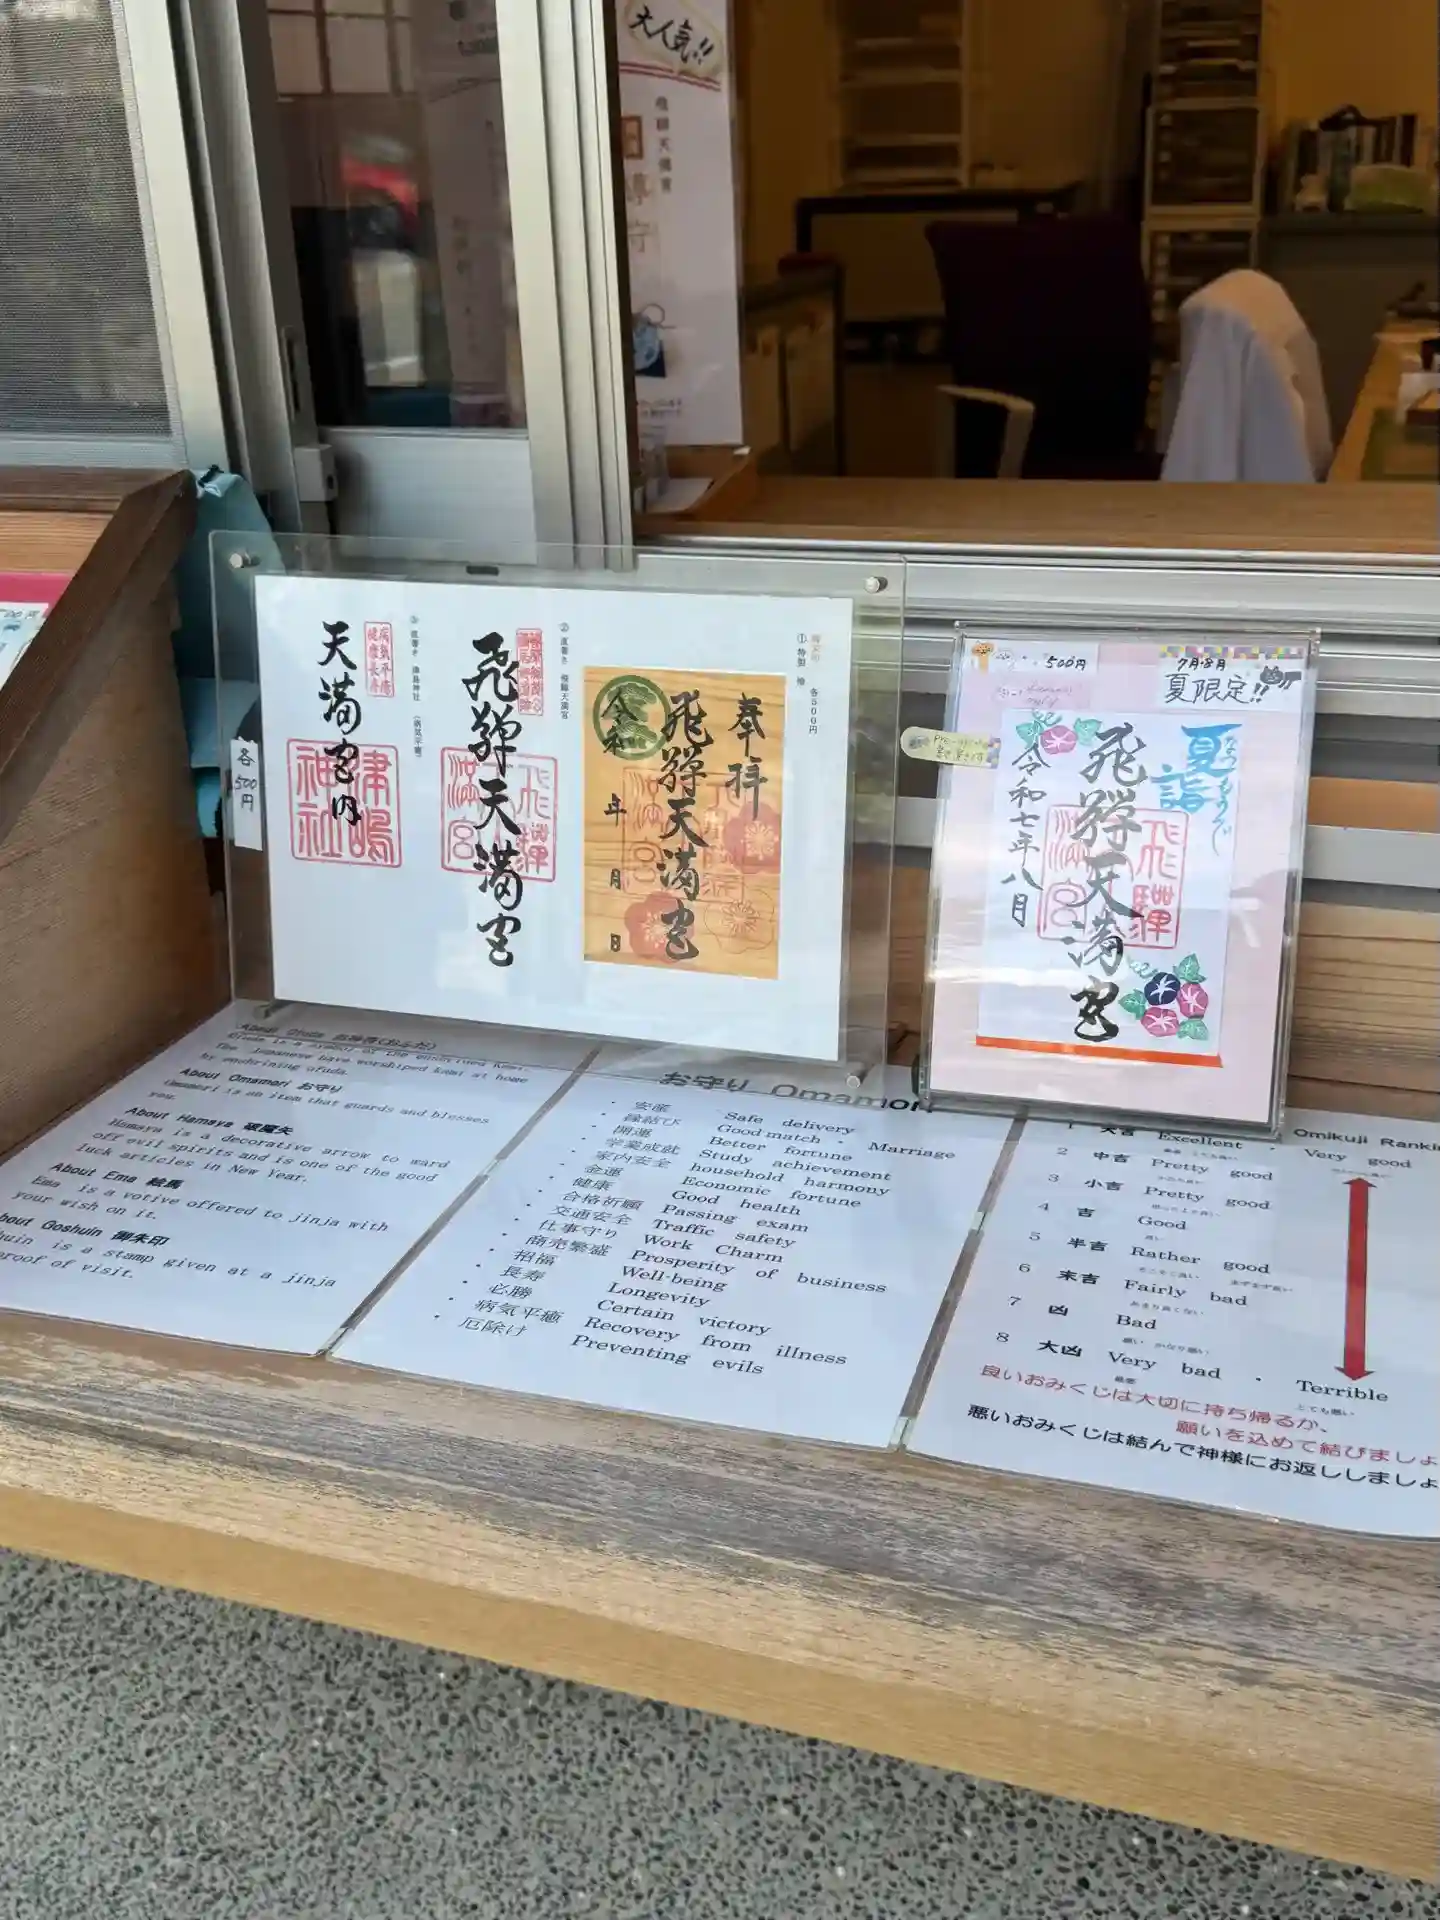 大人気!!
飛騨天満宮
守
500円
各500円
天満宮内
病気平癒
健康長寿
津嶋
神社
③ 直書き 津島神社 (病気平癒)
飛騨天満宮
飛騨
天満宮
② 直書き 飛騨天満宮
奉拝
飛騨天満宮
令和 年 月 日
① 特製 檜
各500円
500円
7月・8月
夏限定!!
夏詣
なつもうで
飛騨天満宮
令和七年八月
About Ofuda お神札(おふだ)
Ofuda is a symbol of the enshrined Kami.
The Japanese have worshiped kami at home
by enshrining ofuda.
About Omamori お守り
Omamori is an item that guards and blesses
you.
About Hamaya 破魔矢
Hamaya is a decorative arrow to ward
off evil spirits and is one of the good
luck articles in New Year.
About Ema 絵馬
Ema is a votive offered to jinja with
your wish on it.
bout Goshuin 御朱印
huin is a stamp given at a jinja
roof of visit.
お守り Omamori
・ 安産 Safe delivery
・ 縁結び Good match ・ Marriage
・ 開運 Better fortune
・ 学業成就 Study achievement
・ 家内安全 household harmony
・ 金運 Economic fortune
・ 健康 Good health
・ 合格祈願 Passing exam
・ 交通安全 Traffic safety
・ 仕事守り Work Charm
・ 商売繁盛 Prosperity of business
・ 招福 Well-being
・ 長寿 Longevity
・ 必勝 Certain victory
・ 病気平癒 Recovery from illness
・ 厄除け Preventing evils
Omikuji Ranki
1 大吉 Excellent ・ Very good
2 中吉 Pretty good
3 小吉 Pretty good
4 吉 Good
5 半吉 Rather good
6 末吉 Fairly bad
7 凶 Bad
8 大凶 Very bad ・ Terrible
良いおみくじは大切に持ち帰るか、
願いを込めて結びましょ
悪いおみくじは結んで神様にお返ししましょ